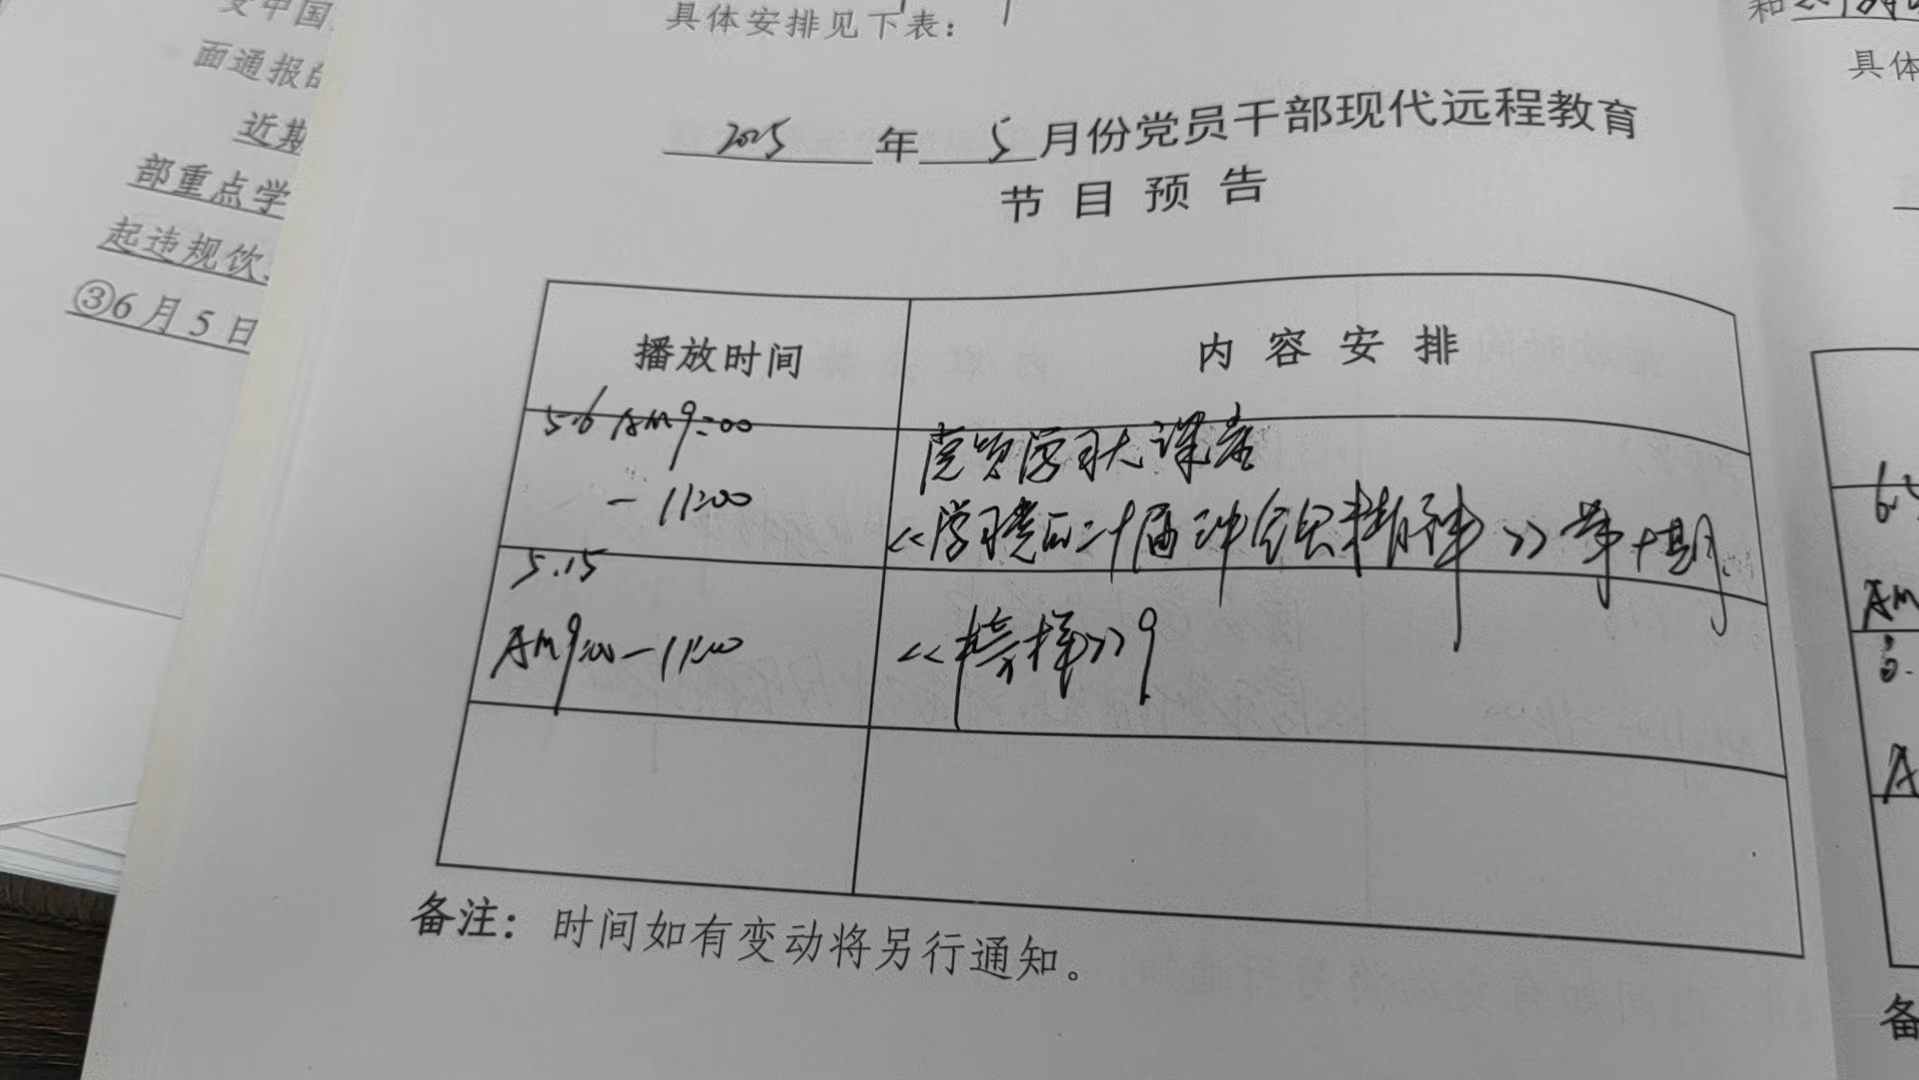 受中国
面通报的
近期
部重点学
起违规饮
③6月5日
具体安排见下表：
2025年5月份党员干部现代远程教育
节目预告
播放时间 内容安排
5.6 AM9:00
- 11:00
党员学习大课堂
《学习党的二十届三中全会精神》第十期
5.15
AM9:00-11:00
《榜样》9
备注：时间如有变动将另行通知。
和
具体
6.
AM
6.
A
备